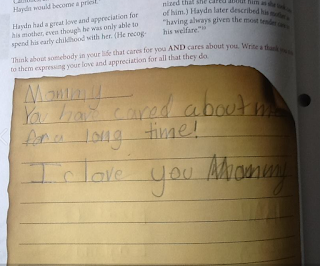 Haydn would become a priest.
Haydn had a great love and appreciation for
his mother, even though he was only able to
spend his early childhood with her. (He recog-
nized that she cared about him as she
of him.) Haydn later described his
"having always given the most tender
his welfare."
Think about somebody in your life that cares for you AND cares about you. Write a thank
to them expressing your love and appreciation for all that they do.
Mommy
You have cared about
for a long time!
I love you Mommy